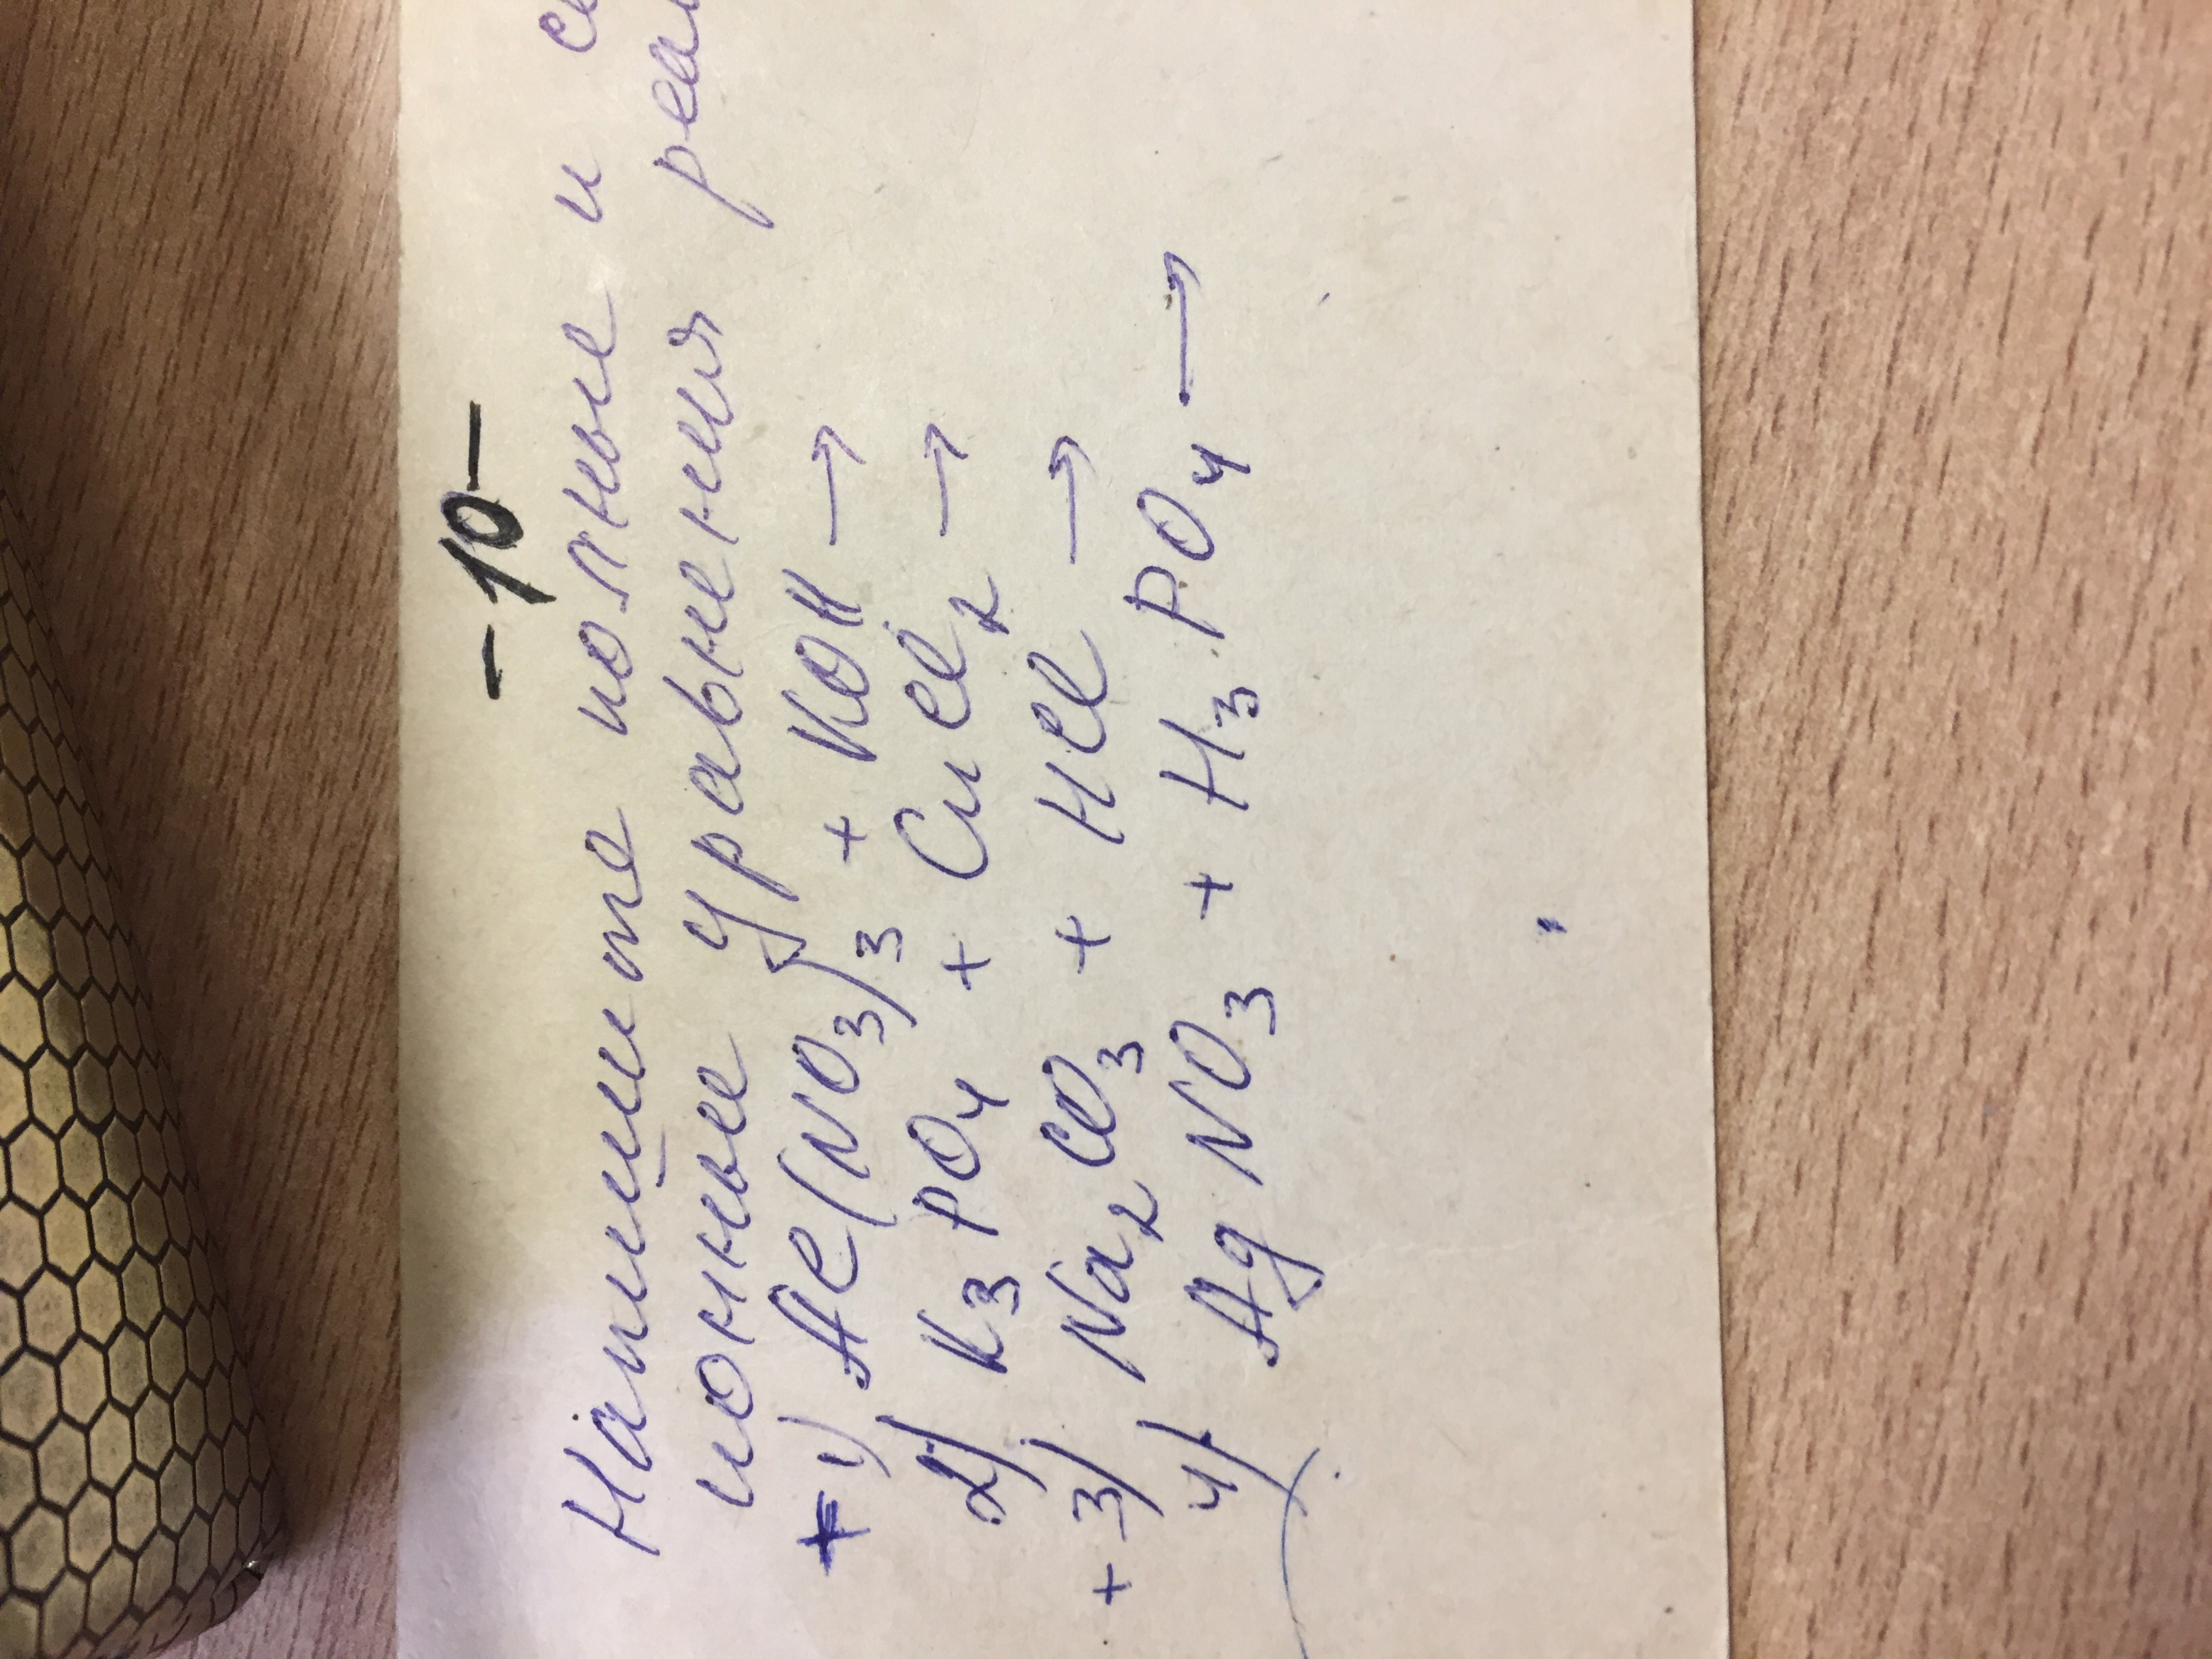 -10-
Напишите полные и
ионные уравнения
1) Al(NO₃)₃ + KOH →
2) K₃PO₄ + CuCl₂ →
+ 3) Na₂CO₃ + HCl →
4) AgNO₃ + H₃PO₄ →